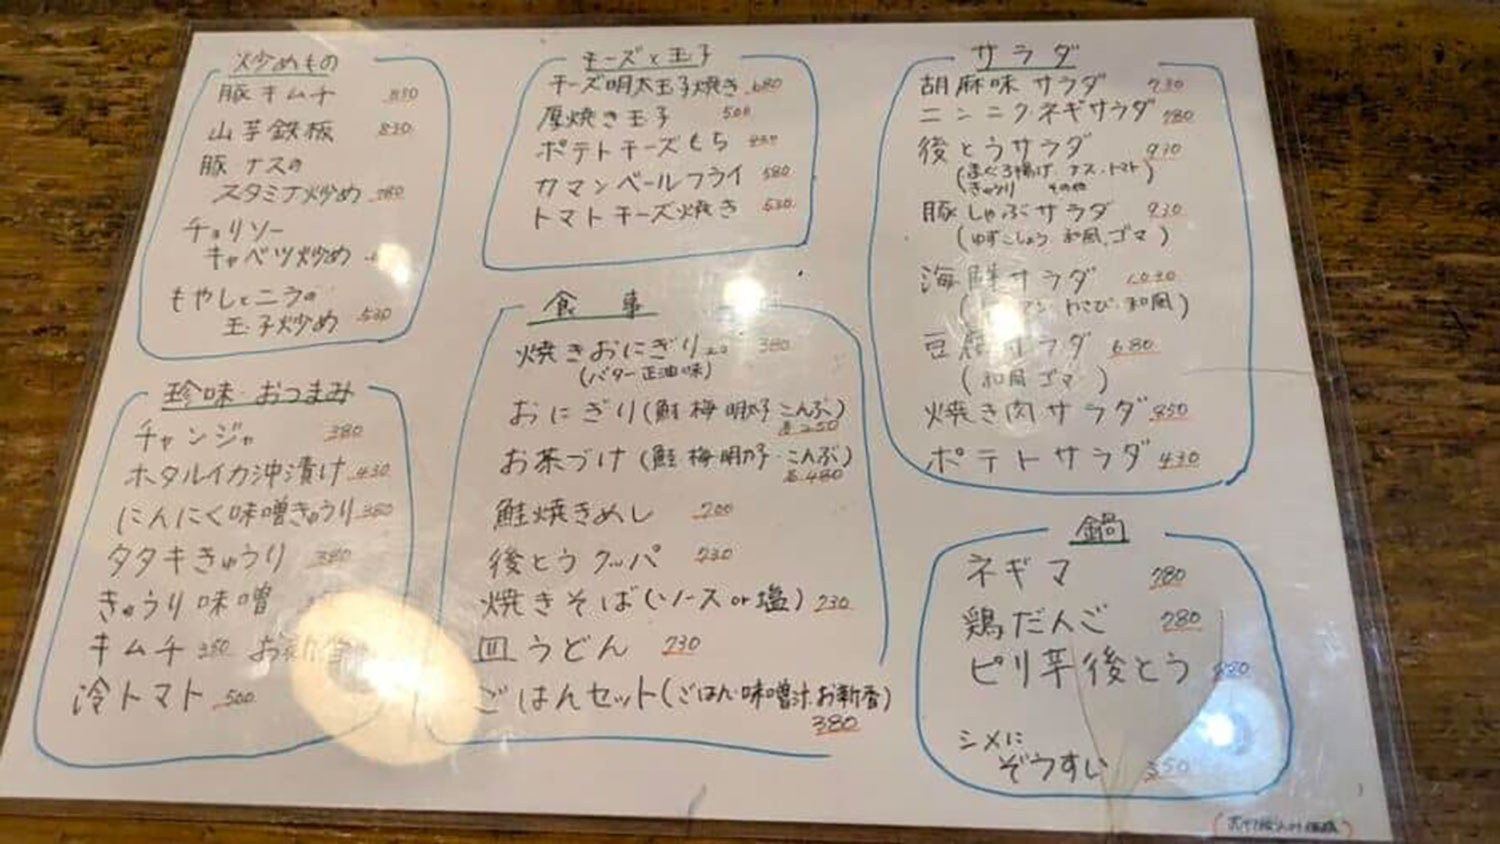 炒めもの
豚キムチ 830
山芋鉄板 830
豚ナスの
スタミナ炒め 780
チョリソー
キャベツ炒め
もやしとニラの
玉子炒め 530
珍味・おつまみ
チャンジャ 380
ホタルイカ沖漬け 430
にんにく味噌きゅうり 380
タタキきゅうり 380
きゅうり味噌
キムチ 350 お新香
冷トマト 500
チーズと玉子
チーズ明太玉子焼き 680
厚焼き玉子 500
ポテトチーズもち
カマンベールフライ 580
トマトチーズ焼き 530
食事
焼きおにぎり 380
(バター正油味)
おにぎり(鮭 梅 明太子 こんぶ)
各250
お茶づけ(鮭 梅・明太子・こんぶ)
各480
鮭焼きめし 700
後とうクッパ 730
焼きそば(ソース or 塩) 730
皿うどん 730
ごはんセット(ごはん・味噌汁・お新香)
380
サラダ
胡麻味サラダ 730
ニンニクネギサラダ 780
後とうサラダ 930
(まぐろ揚げ ナス・トマト
きゅうり その他)
豚しゃぶサラダ 930
(ゆずこしょう 和風、ゴマ)
海鮮サラダ 1030
わさび・和風)
豆腐サラダ 680
(和風 ゴマ)
焼き肉サラダ 850
ポテトサラダ 430
鍋
ネギマ 780
鶏だんご 780
ピリ辛後とう
シメに
ぞうすい 350